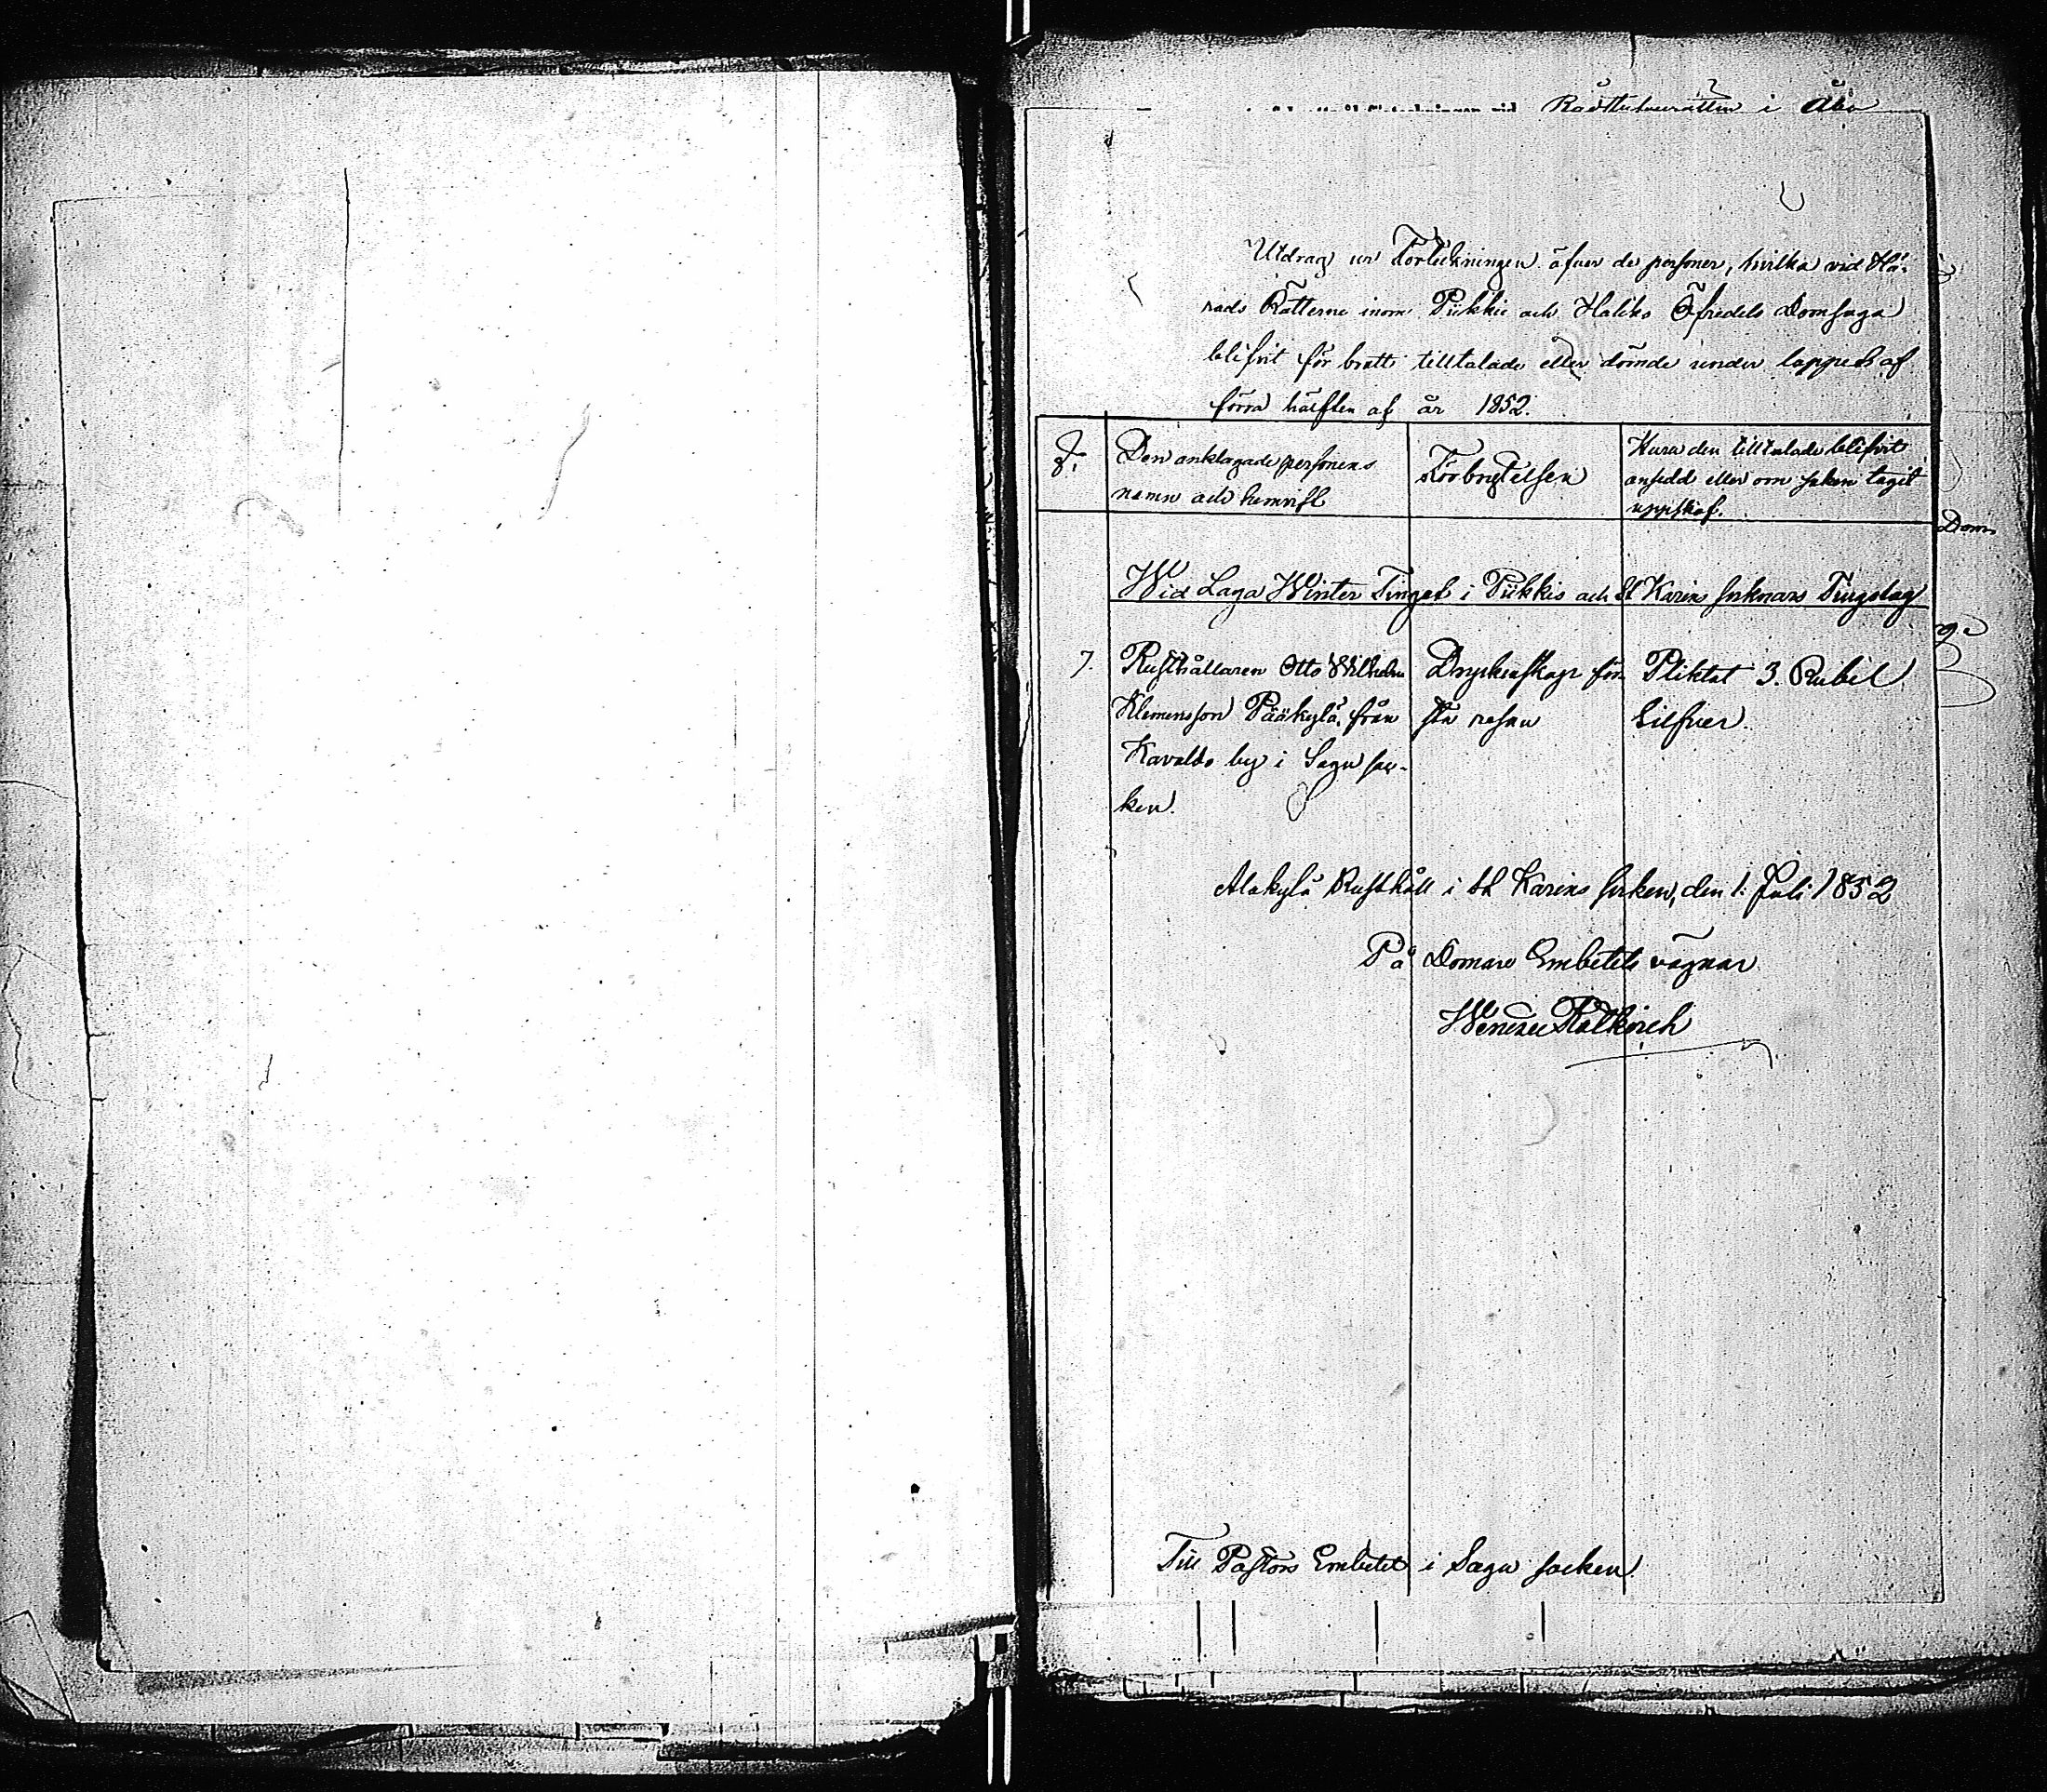 Rådstufvurätten i Åbo
Utdrag ur Förteckningen öfver de personer, hvilka vid Hä-
rads Rätterne inom Piikkie och Haliko Öfredels Domsaga
blifvit för brott tilltalade eller dömde under loppet af
förra hälften af år 1852.
Den anklagade personens
namn och hemvist
Förbrytelsen
Huru den tilltalade blifvit
ansedd eller om saken tagit
uppskof.
Dom
Wid Laga Winter Tinget i Piikkis och St Karins socknars Tingslag
7. Rusthållaren Otto Wilhelm Dryckenskap för- Pliktat 3. Rubel
Klemensson Pääkylä från sta resan Silfver.
Kavalto by i Sagu soc-
ken.
Alakylä Rusthåll i St Karins socken, den 1. Juli 1852
På Domare Embetets vägnar
Rotkirch
Till Pastors Embetet i Sagu socken.